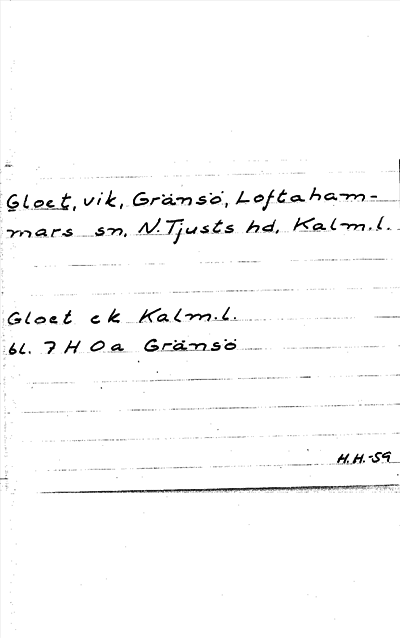 Gloet, vik, Gränsö, Loftaham-
mars sn, N. Tjusts hd, Kalm. l.
Gloet ek Kalm. l.
bl. 7 H 0 a Gränsö
H. H. -59